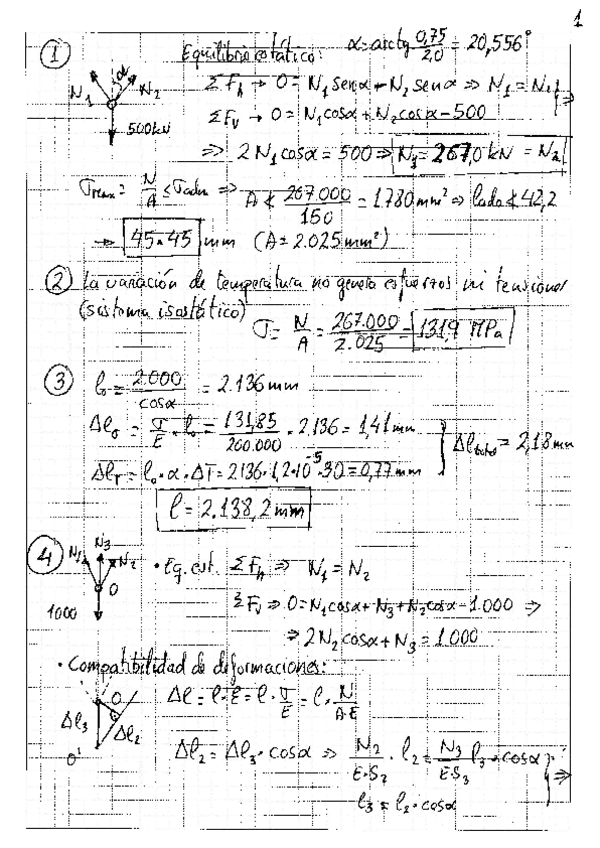 1
① Equilibrio estático: α=arctg 0,75/2,0 = 20,556°
N₁ α N₂ 500kN
ΣF_H → 0 = N₁ senα + N₂ senα ⇒ N₁ = N₂
ΣF_V → 0 = N₁cosα + N₂cosα - 500
⇒ 2N₁cosα = 500 ⇒ N₁ = 267,0 kN = N₂
σmax = N/A ≤ σadm ⇒ A ≮ 267.000/150 = 1780 mm² ⇒ lado ≮ 42,2
→ 45×45 mm (A = 2.025 mm²)
② La variación de temperatura no genera esfuerzos ni tensiones
(sistema isostático)
σ = N/A = 267.000/2.025 = 131,9 MPa
③ l₀ = 2.000/cosα = 2.136 mm
Δlσ = σ/E · l₀ = 131,85/200.000 · 2.136 = 1,41 mm
Δl_T = l₀ · α · ΔT = 2136 · 1,2·10⁻⁵ · 30 = 0,77 mm
Δl total = 2,18 mm
l = 2.138,2 mm
④ N₁ N₃ N₂ O 1000
• Eq. est. ΣF_H ⇒ N₁ = N₂
ΣF_V ⇒ 0 = N₁cosα + N₃ + N₂cosα - 1.000 ⇒
⇒ 2N₂cosα + N₃ = 1.000
• Compatibilidad de deformaciones:
O Δl₃ Δl₂ O'
Δl = l·ε = l · σ/E = l · N/A·E
Δl₂ = Δl₃ · cosα ⇒ N₂/E·S₂ · l₂ = N₃/E·S₃ l₃ · cosα ⇒
l₃ = l₂ · cosα